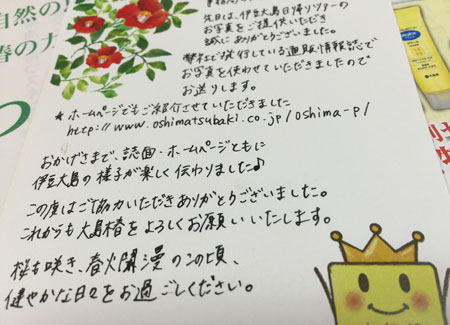 自然の
春の
先日は、伊豆大島日帰りツアーの
お写真をご提供いただき
誠にありがとうございました。
弊社で発行している通販情報誌で
お写真を使わせていただきましたので
お送りします。
★ホームページでもご紹介させていただきました
http://www.oshimatsubaki.co.jp/oshima-p/
おかげさまで、誌面・ホームページともに
伊豆大島の様子が楽しく伝わりました♪
この度はご協力いただきありがとうございました。
これからも大島椿をよろしくお願いいたします。
桜も咲き、春火閙漫のこの頃、
健やかな日々をお過ごしください。